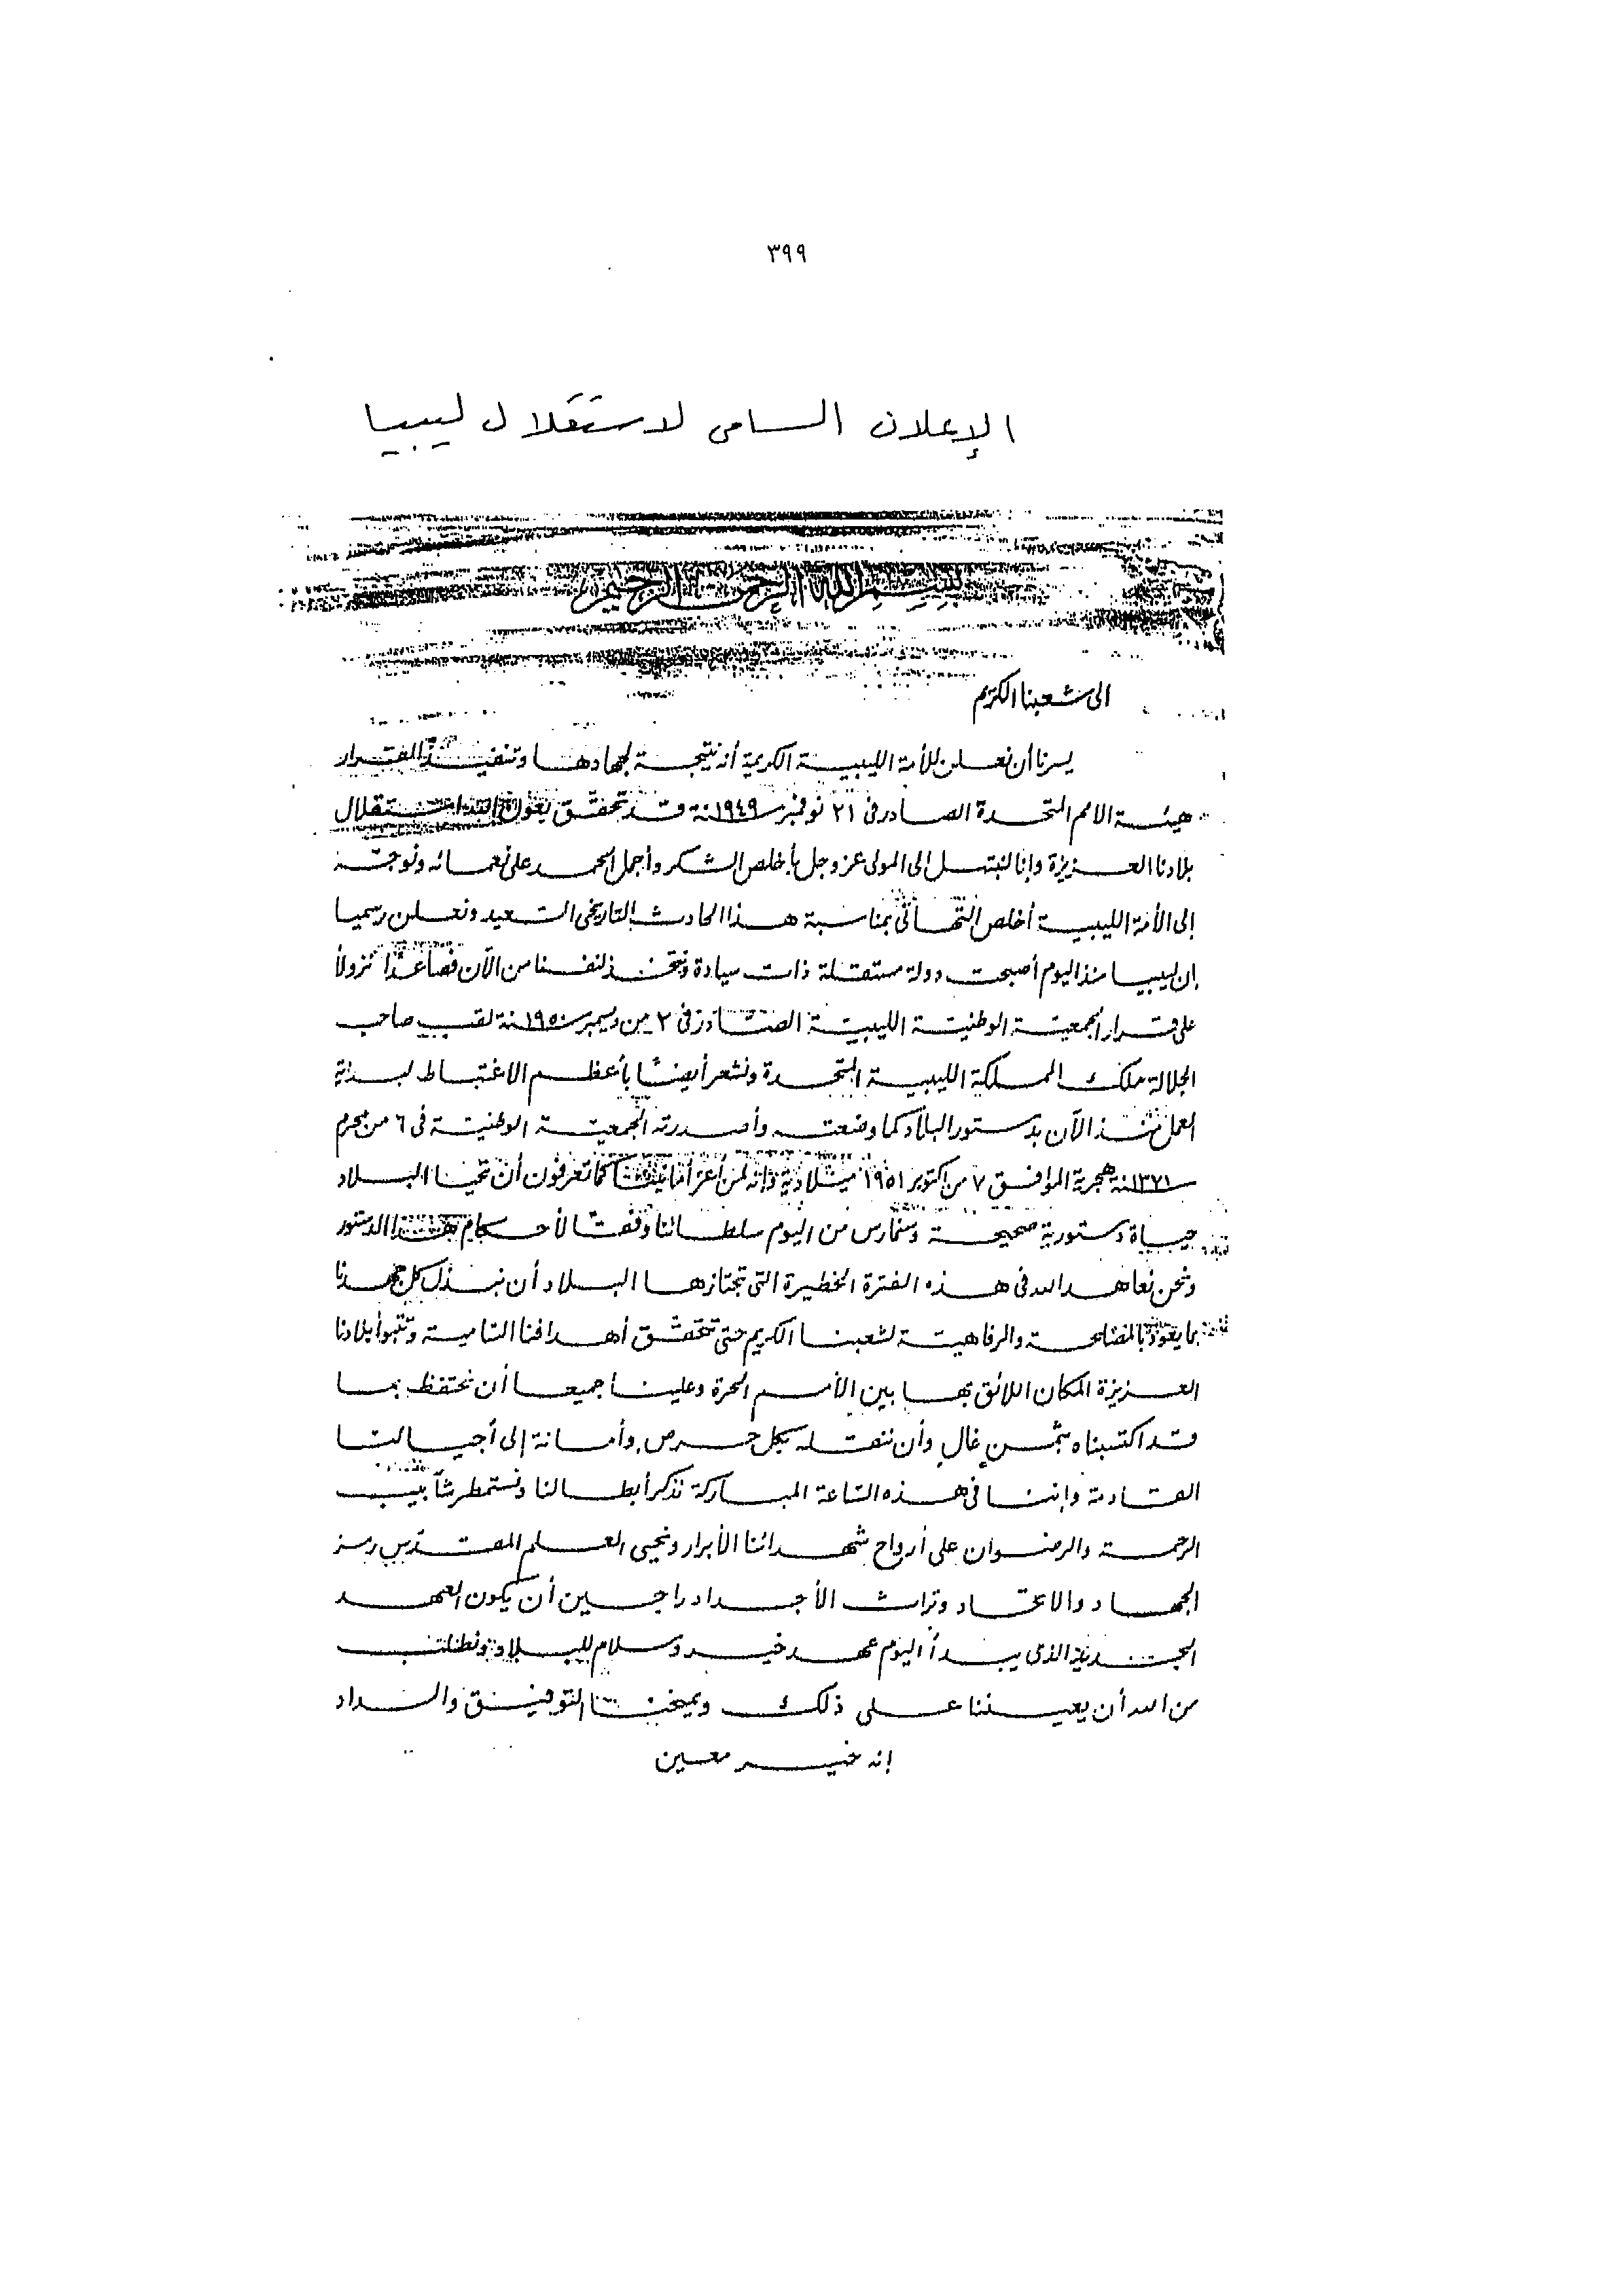 ٣٩٩
الإعلان السامى لاستقلال ليبيا
بسم الله الرحمن الرحيم
الى شعبنا الكريم
يسرنا أن نعلن للأمة الليبية الكريمة أنه نتيجة لجهادها وتنفيذا لقرار
هيئة الامم المتحدة الصادر فى ٢١ نوفمبر سنة ١٩٤٩ قد تحقق بعون الله استقلال
بلادنا العزيزة وإنا لنبتهل إلى المولى عز وجل بأخلص الشكر وأجمل الحمد على نعمائه ونوجه
إلى الأمة الليبية أخلص التهانى بمناسبة هذا الحادث التاريخى السعيد ونعلن رسميا
إن ليبيا منذ اليوم أصبحت دولة مستقلة ذات سيادة ونتخذ لنفسنا من الآن فصاعدا نزولاً
على قرار الجمعية الوطنية الليبية الصادر فى ٢ من ديسمبر سنة ١٩٥٠ لقب صاحب
الجلالة ملك المملكة الليبية المتحدة ونشعر أيضًا بأعظم الاغتباط لبداية
العمل منذ الآن بدستور البلاد كما وضعته وأصدرته الجمعية الوطنية فى ٦ من محرم
سنة ١٣٧١ هجرية الموافق ٧ من اكتوبر ١٩٥١ ميلادية وإنه لمن أعز أمانينا كما تعرفون أن تحيا البلاد
حياة دستورية صحيحة وسنمارس من اليوم سلطاتنا وفقًا لأحكام هذا الدستور
ونحن نعاهد الله فى هذه الفترة الخطيرة التى تجتازها البلاد أن نبذل كل جهدنا
بما يعود بالمصلحة والرفاهية لشعبنا الكريم حتى تتحقق أهدافنا السامية وتتبوأ بلادنا
العزيزة المكان اللائق بها بين الأمم الحرة وعلينا جميعا أن نحتفظ بما
قد اكتسبناه بثمن غالٍ وأن ننقله بكل حرص وأمانة إلى أجيالنا
القادمة وإننا فى هذه الساعة المباركة نذكر أبطالنا ونستمطر شآبيب
الرحمة والرضوان على أرواح شهدائنا الأبرار ونحيى العلم المقدس رمز
الجهاد والاتحاد وتراث الأجداد راجين أن يكون العهد
الجديد الذى يبدأ اليوم عهد خير وسلام للبلاد ونطلب
من الله أن يعيننا على ذلك ويمنحنا التوفيق والسداد
إنه خير معين